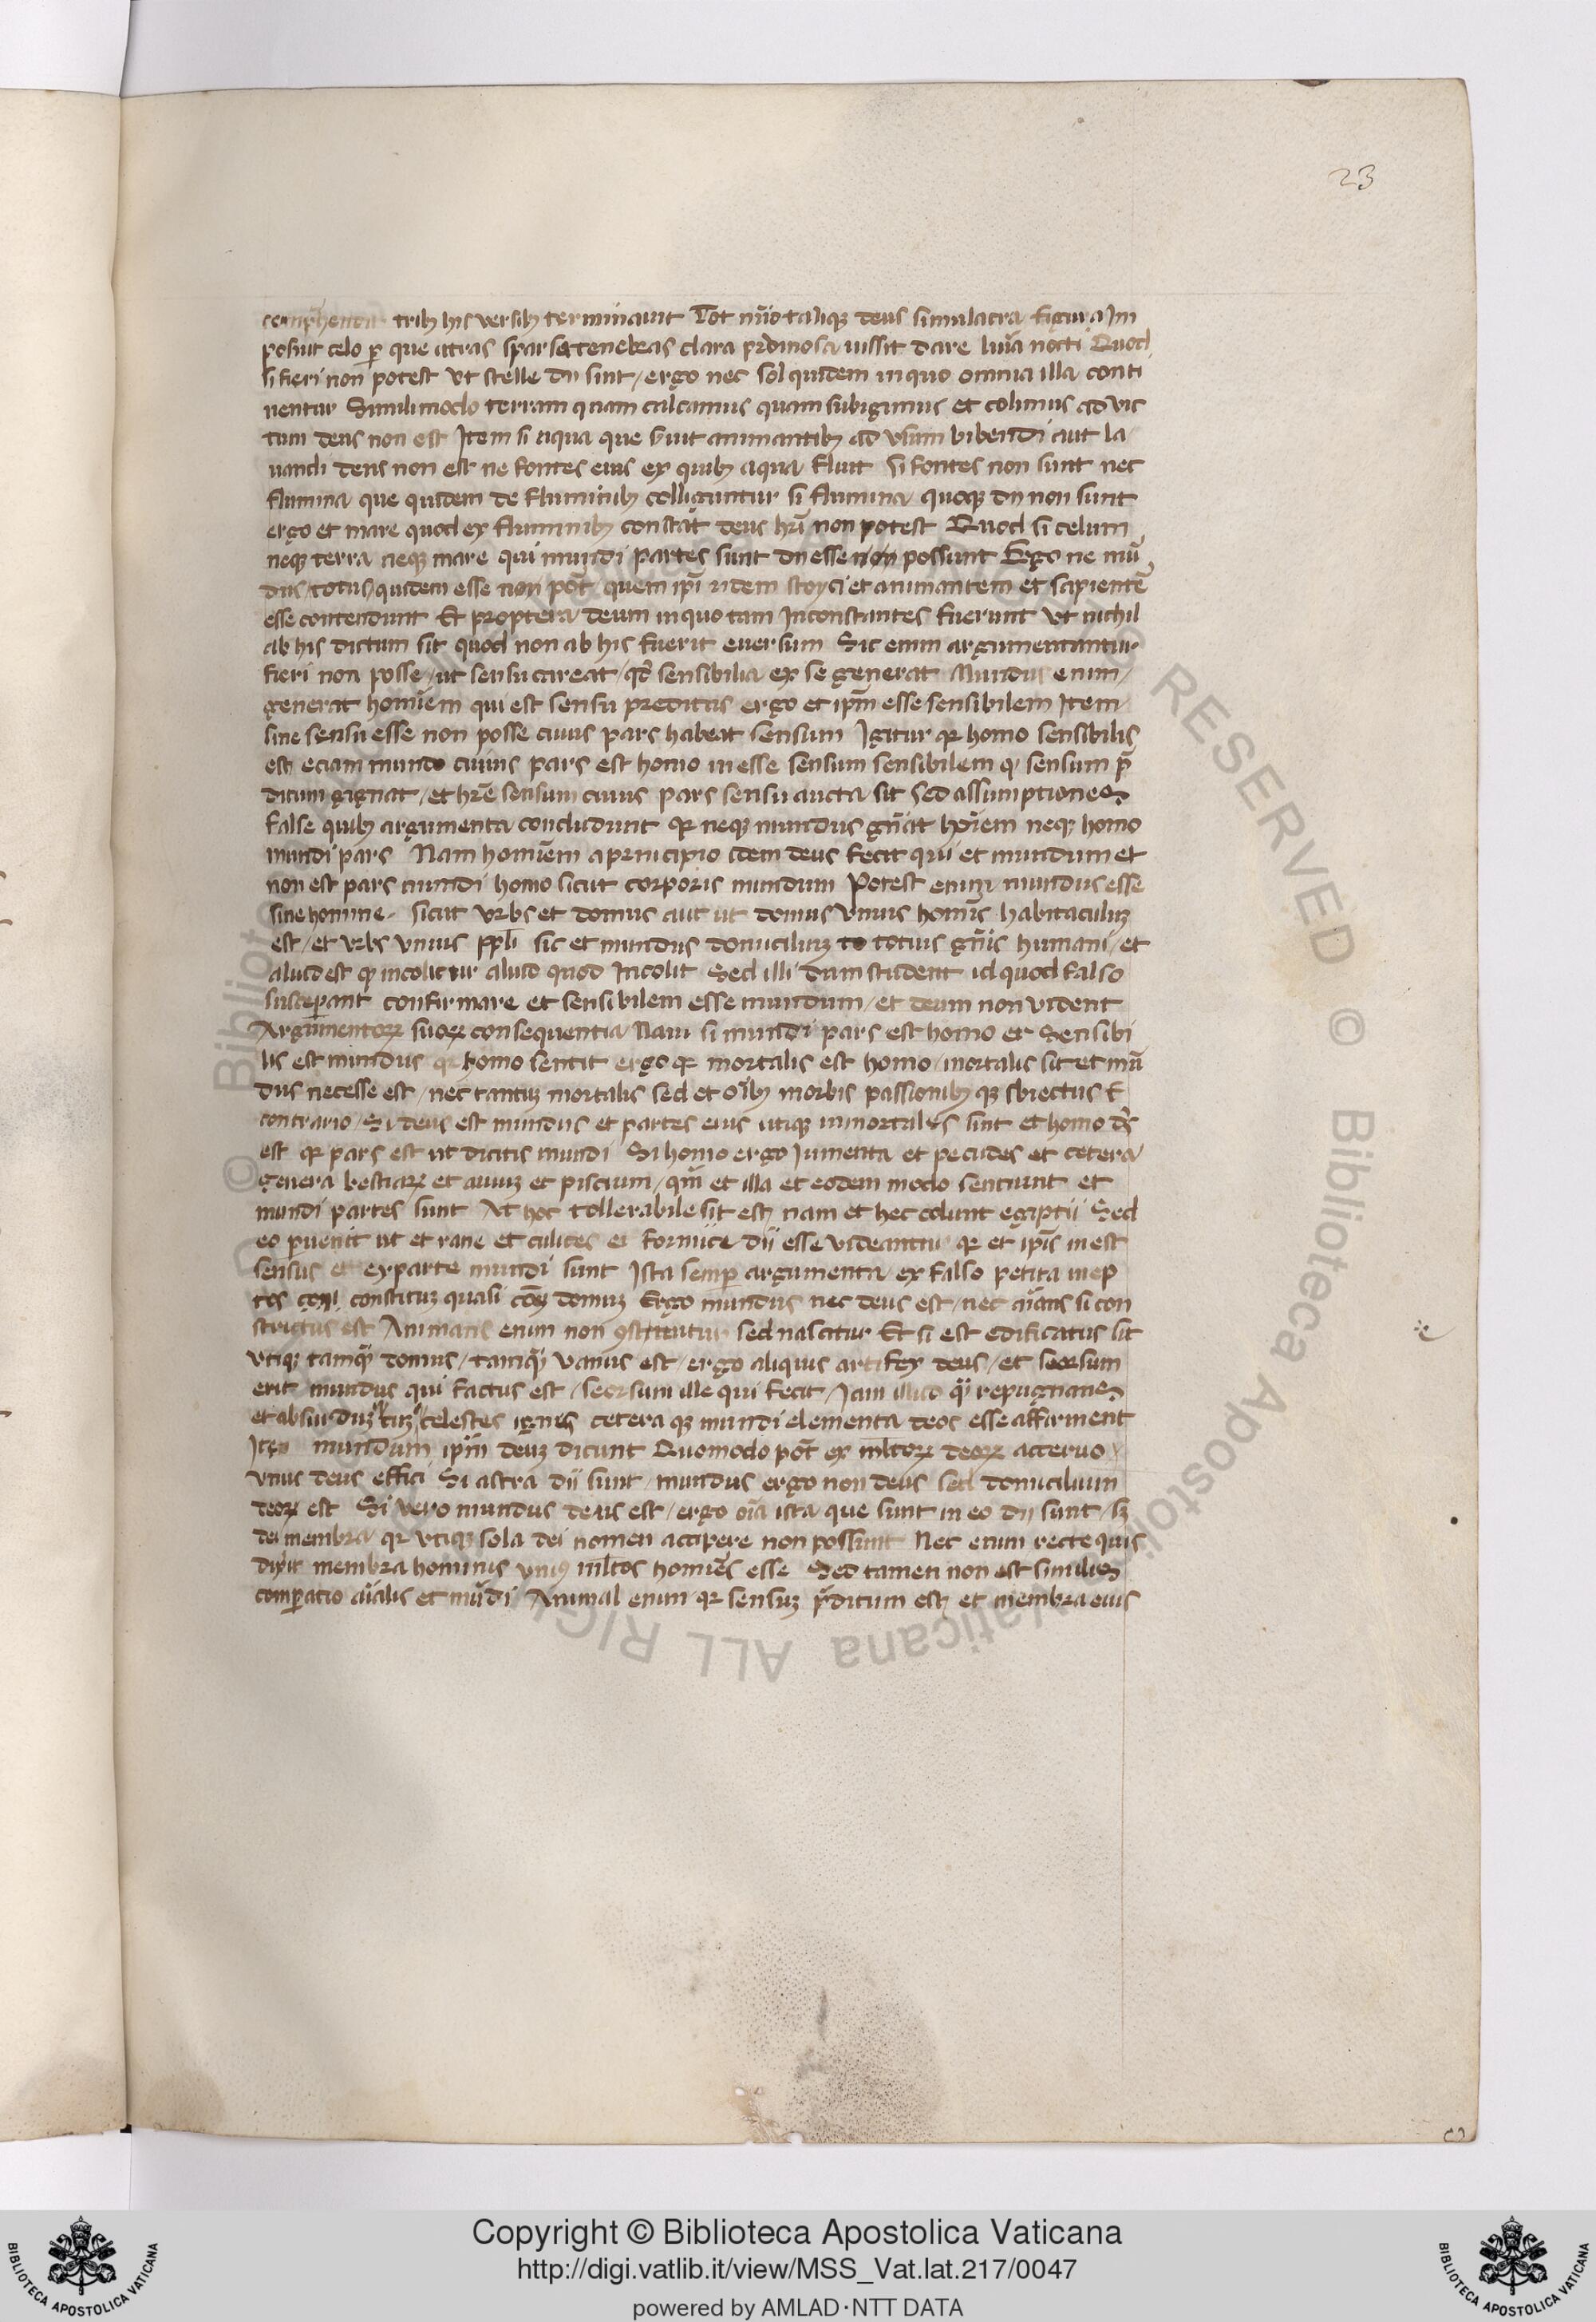 23
comprehendit tribꝫ his versibꝫ terminauit Tot nūo taliqꝫ deus simulacra figura Im
posuit celo ꝑ que atras sparsa tenebras clara prdinosa iussit dare luīa nocti Quod
si fieri non potest vt stelle dij sint / ergo nec sol quidem in quo omnia illa conti
nentur Simili modo terram quam calcamus quam subigimus et colimus ad vic
tum deus non est Item si aqua que seruit animantibꝫ ad vsum bibendi aut la
uandi deus non est ne fontes eius ex quibꝫ aqua fluit Si fontes non sunt nec
flumina que quidem de fluminibꝫ colliguntur si flumina quoqꝫ dij non sunt
ergo et mare quod ex fluminibꝫ constat deus hr̄i non potest Quod si celum
neqꝫ terra neqꝫ mare qui mundi partes sunt dij esse non possunt Ergo ne mū
dus / totus quidem esse non pōt quem ip̄i iidem stoyci et animantem et sapientē
esse contendunt Et propterea deum in quo tam Inconstantes fuerunt vt nichil
ab his dictum sit quod non ab his fuerit euersum Sic enim argumentantur
fieri non posse / ut sensu careat / qd̄ sensibilia ex se generat Mundus enim /
generat hominem qui est sensu preditus ergo et ip̄m esse sensibilem Item
sine sensu esse non posse cuius pars habeat sensum Igitur qꝛ homo sensibilis
est eciam mundo cuius pars est homo in esse sensum sensibilem qꝫ sensum p̄
ditum gignat / et hr̄e sensum cuius pars sensu aucta sit Sed assumptiones
false quibꝫ argumenta concludunt qꝛ neqꝫ mundus gn̄at hoīem neqꝫ homo
mundi pars Nam hominem a principio idem deus fecit qui et mundum et
non est pars mundi homo sicut corporis mundum Potest enim mundus esse
sine homine sicut vrbs et domus aut ut domus vnius homīs habitaculuꝫ
est / et vrbs vnius ppl̄i sic et mundus domiciliuꝫ to totius gn̄is humani / et
aliud est qꝫ incolitur aliud quod Incolit Sed illi dum student id quod falso
susceperant confirmare et sensibilem esse mundum / et deum non vident
Argumentoꝝ suoꝝ consequentia Nam si mundi pars est homo et Sensibi
lis est mundus qꝛ homo sentit ergo qꝛ mortalis est homo / mortalis sit et mū
dus necesse est / nec tantuꝫ mortalis sed et oībꝫ morbis passionibꝫ qꝫ sbiectus E
contrario / Si deus est mundus et partes eius utiqꝫ immortales sint et homo ds̄
est qꝛ pars est ut dicitis mundi Si homo ergo Jumenta et pecudes et cetera
genera bestiaꝝ et auiuꝫ et piscium / qm̄ et illa et eodem modo sentiunt et
mundi partes sunt At hoc tollerabile sit est nam et hec colunt egiptii Sed
eo ꝑuenit ut et rane et culices et formice dii esse videantur qꝛ et ip̄is inest
sensus et ex parte mundi sunt Ista semper argumenta ex falso petita inep
tos constituꝫ quasi domuꝫ Ergo mundus nec deus est / nec aīans si con
structus est Animans enim non ꝯstituitur sed nascitur Et si est edificatus sit
vtiqꝫ tamqꝫ domus / tamqꝫ vanus est / ergo aliquis artifex deus / et seorsum
erit mundus qui factus est / seorsum ille qui fecit / Jam illud qꝫ repugnanes
et absurduꝫ cuꝫ celestes ignes cetera qꝫ mundi elementa deos esse affirment
Itē mundum ip̄m deuꝫ dicunt Quomodo pōt ex ml̄toꝝ deoꝝ aceruo
vnus deus effici Si astra dii sunt / mundus ergo non deus sed domicilium
deoꝝ est Si vero mundus deus est / ergo oīa ista que sunt in eo dij sunt / sꝫ
dei membra qꝛ vtiqꝫ sola dei nomen accipere non possunt Nec enim recte quis
dixit membra hominis vniꝰ ml̄tos homīes esse Sed tamen non est similis
comparatio aīalis et mūdi Animal enim qꝛ sensuꝫ p̄ditum est et membra eius
Copyright © Biblioteca Apostolica Vaticana
http://digi.vatlib.it/view/MSS_Vat.lat.217/0047
powered by AMLAD·NTT DATA